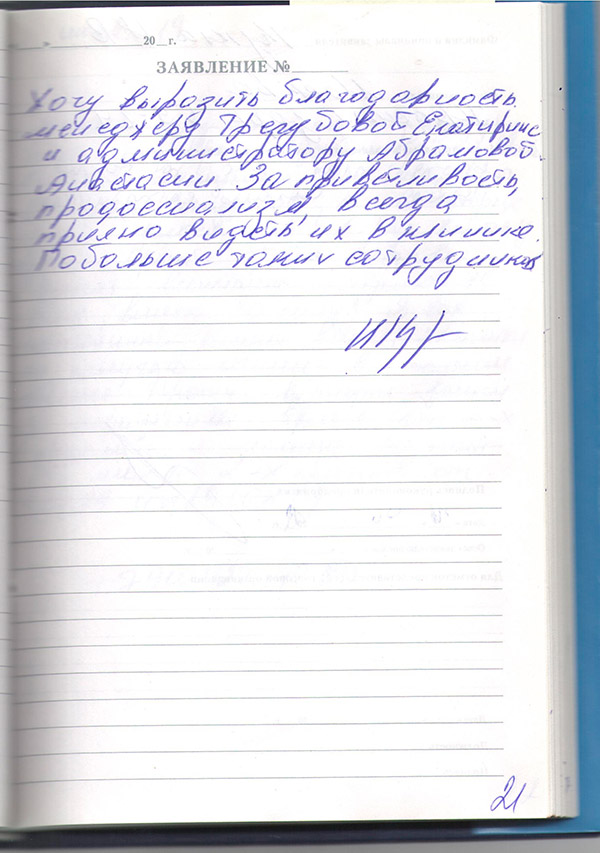 " 20 г.
ЗАЯВЛЕНИЕ №
Хочу выразить благодарность
менеджеру Трегубовой Екатирине
и администратору Абрамовой
Анастасии. За приветливость,
продоссиализм, всегда
прияно видеть их в клинике.
Побольше таких сотрудников
21